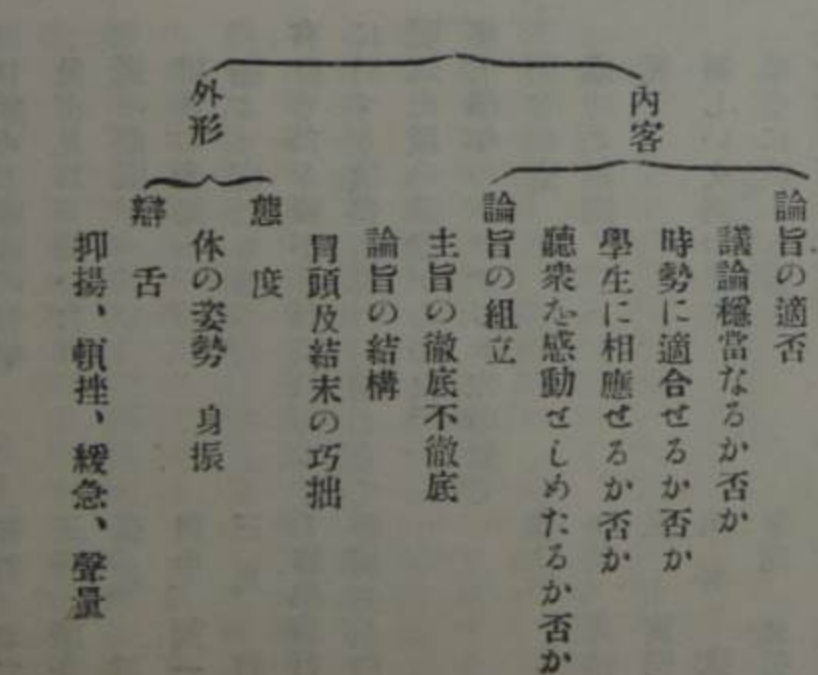 內容
論旨の適否
議論穩當なるか否か
時勢に適合せるか否か
學生に相應せるか否か
聽衆を感動せしめたるか否か
論旨の組立
主旨の徹底不徹底
論旨の結構
冒頭及結末の巧拙
外形
態度
体の姿勢 身振
辯舌
抑揚、頓挫、緩急、聲量